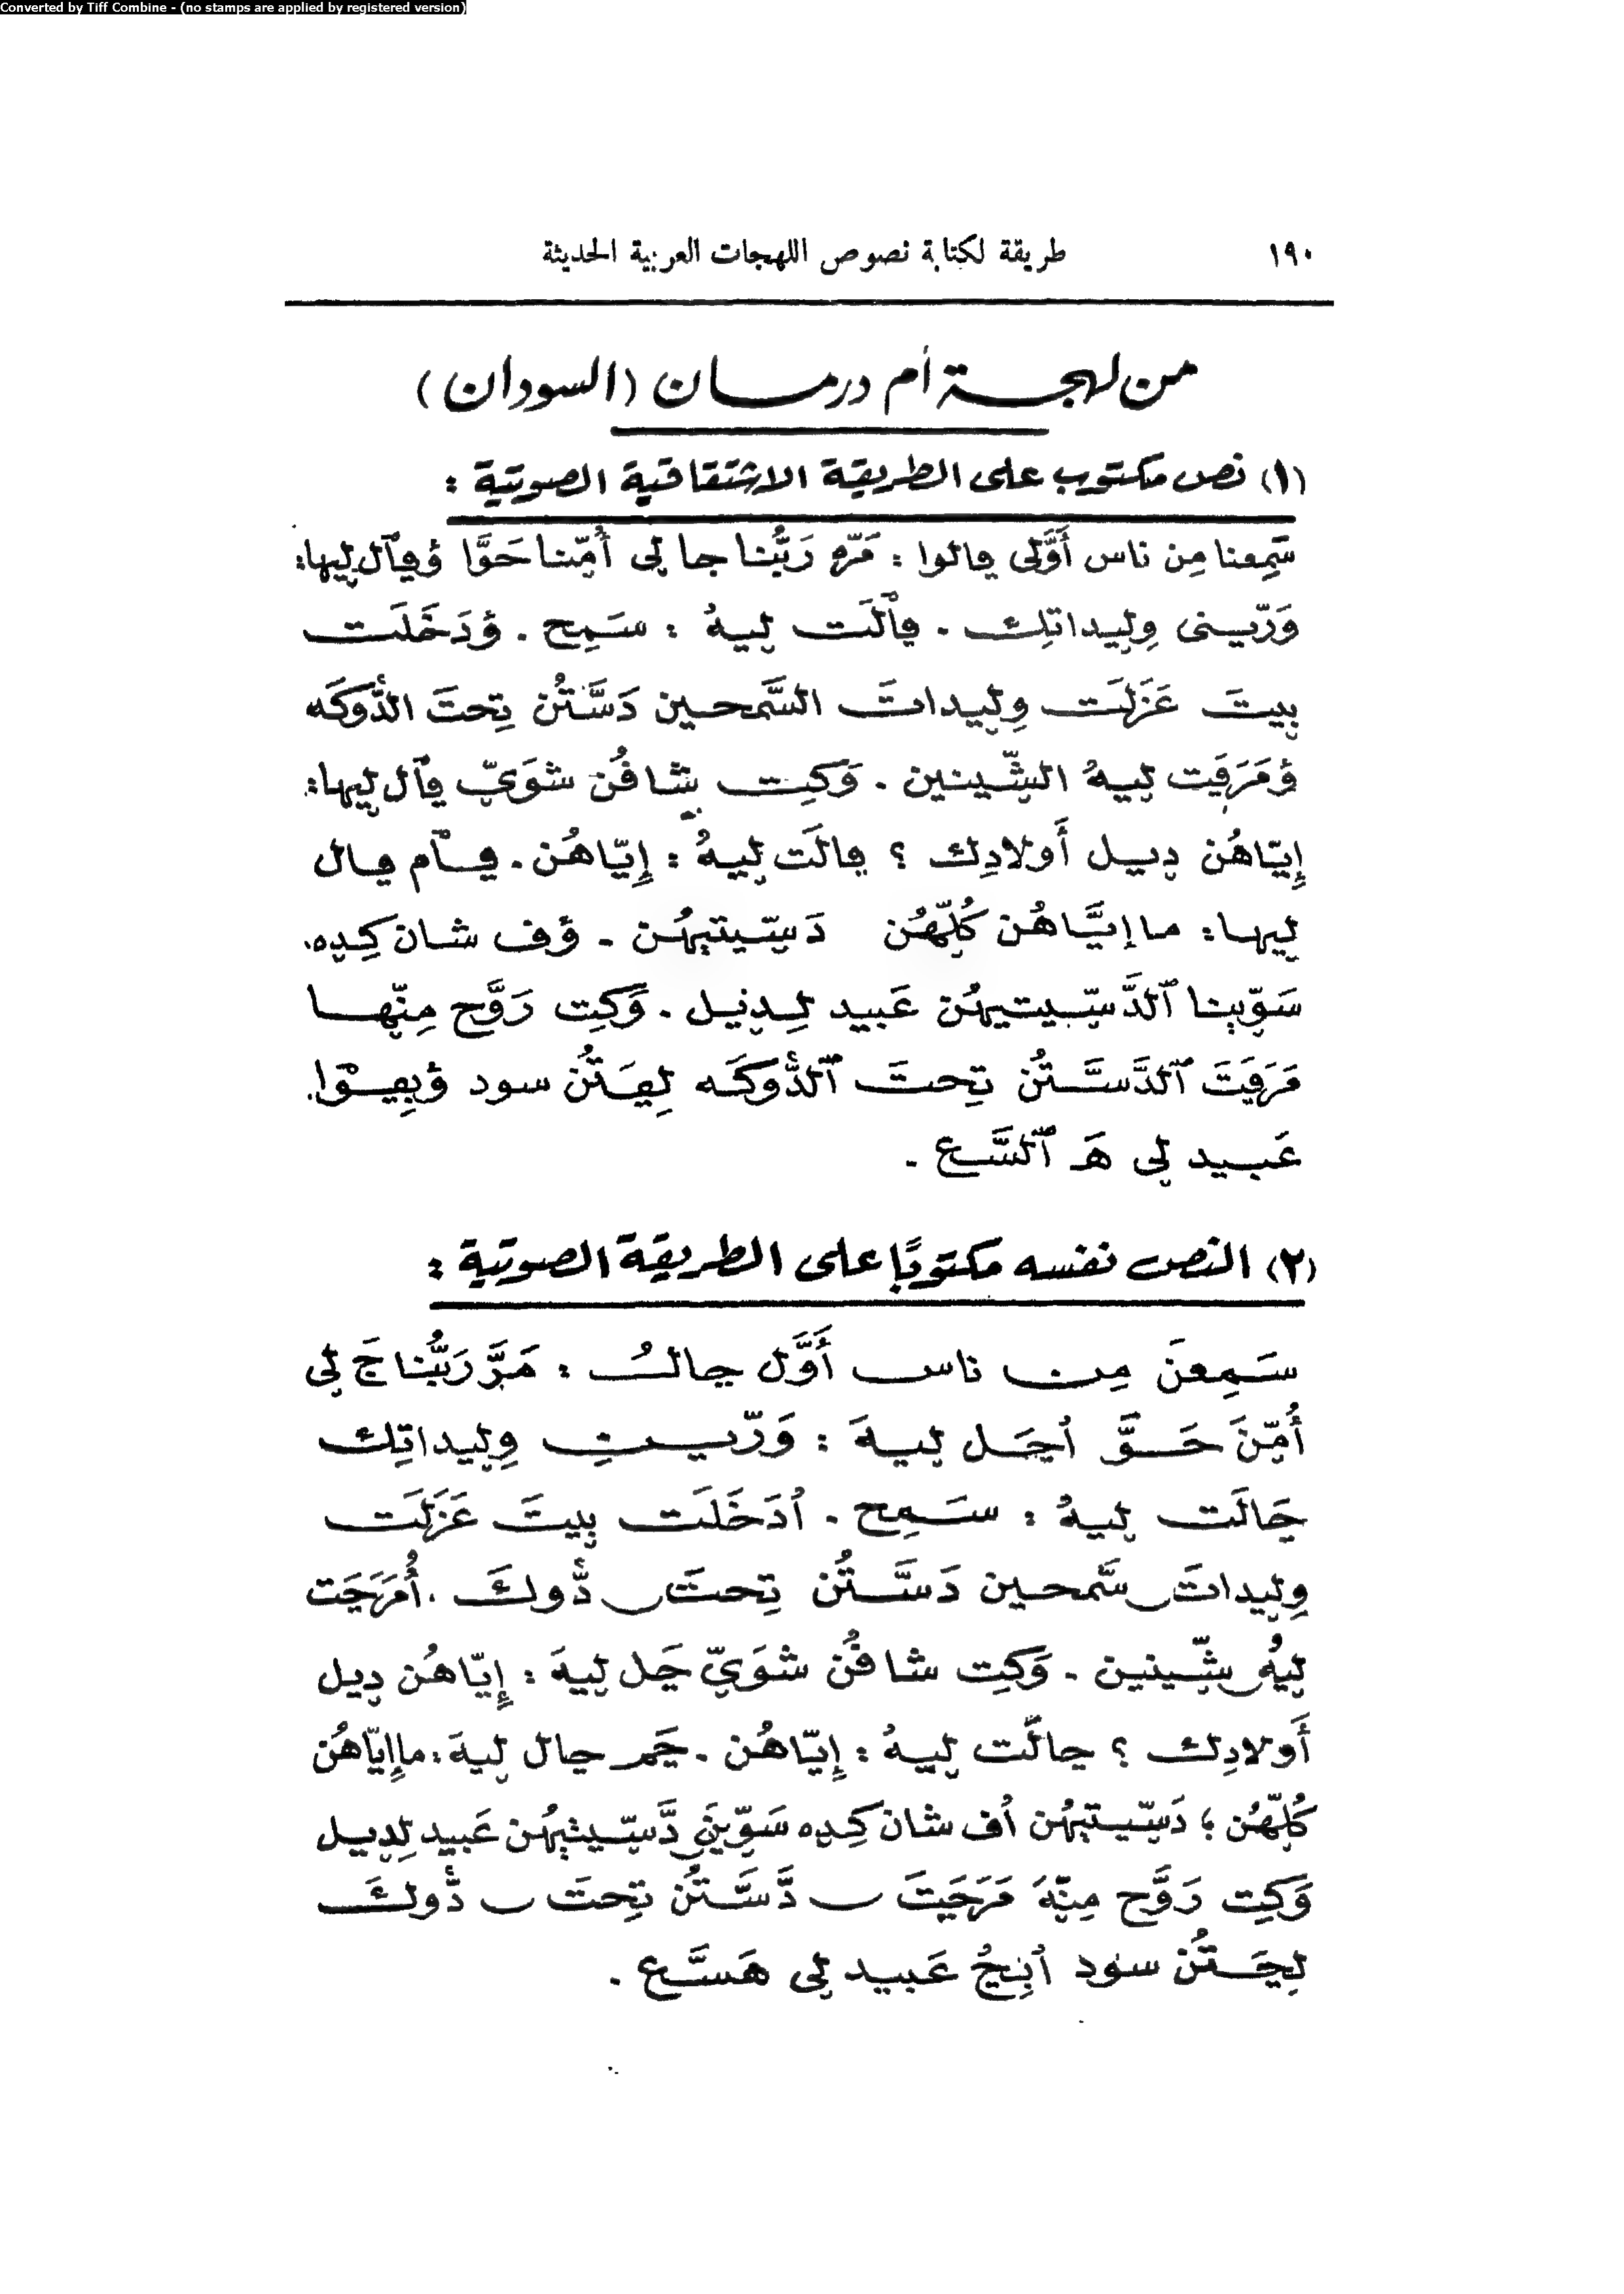 Converted by Tiff Combine - (no stamps are applied by registered version)
١٩٠ طريقة لكتابة نصوص اللهجات العربية الحديثة
من لهجة أم درمان (السودان)
(١) نص مكتوب على الطريقة الاشتقاقية الصوتية :
سَمِعنا مِن ناس أَوَّلى ڢالوا : مَرّه رَبُّنا جا لِى أُمِّنا حَوَّا ؤڢآل ليها:
وَرّينى وِليداتِك . ڢالَت ليهُ : سَمِح . ؤدَخَلَت
بيتَ عَزَلَت وِليداتَ السَّمحين دَسَّتُن تِحتَ الدُّوكَه
ؤمَرَڢَت ليهُ الشِّينين . وَكِت شافُن شوَيّ ڢآل ليها:
إيّاهُن ديل أَولادِك ؟ ڢالَت ليهُ : إيّاهُن . ڢآم ڢال
ليها: ما إيَّاهُن كُلّهُن دَسّيتيهُن . ؤف شان كِده.
سَوّينا ٱلدَّسّيتيهُن عَبيد لِديل . وَكِت رَوَّح مِنّها
مَرَڢَتَ ٱلدَّسَّتُن تِحتَ ٱلدُّوكَه لِڢَتُن سود ؤبِڢوا.
عَبيد لِى هَـ ٱلسَّع .
(٢) النص نفسه مكتوبًا على الطريقة الصوتية :
سَمِعنَ مِن ناس أَوَّل چالُ : مَرَّ رَبُّنا جَ لِى
أُمِّنَ حَوَّ أُچَل ليهَ : وَرّينِ وِليداتِك
چالَت ليهُ : سَمِح . أُدَخَلَت بيتَ عَزَلَت
وِليداتَ سَّمحين دَسَّتُن تِحتَ دُّوكَ . أُمَرَچَت
ليهُ شِّينين . وَكِت شافُن شوَيّ چَل ليهَ : إيّاهُن ديل
أَولادِك ؟ چالَت ليهُ : إيّاهُن . چَم چال ليهَ : ما إيّاهُن
كُلّهُن ؛ دَسّيتيهُن أُف شان كِده سَوّينَ دَّسّيتيهُن عَبيد لِديل
وَكِت رَوَّح مِنّهَ مَرَچَتَ دَّسَّتُن تِحتَ دُّوكَ
لِچَتُن سود أُبِچُ عَبيد لِى هَسَّع .